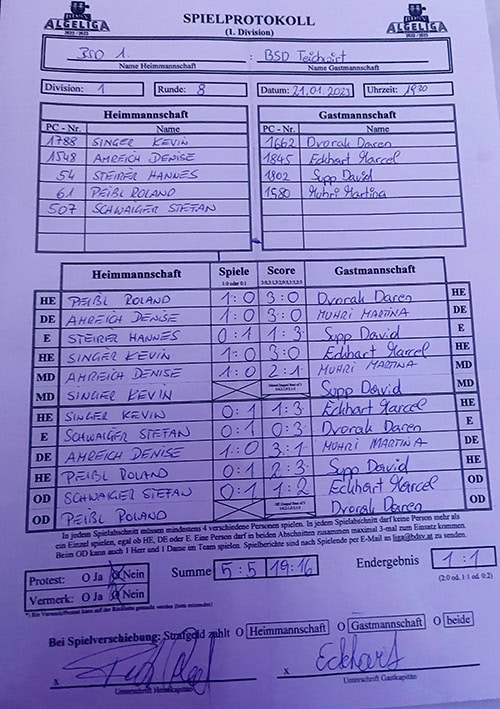 ALGELIGA SPIELPROTOKOLL ALGELIGA
2022 / 2023 (1. Division) 2022 / 2023
BSO 1. : BSD Teichwirt
Name Heimmannschaft Name Gastmannschaft
Division: 1 Runde: 8 Datum: 21.01.2023 Uhrzeit: 1930
Heimmannschaft Gastmannschaft
PC - Nr. Name PC - Nr. Name
1788 SINGER KEVIN 1662 Dvorak Daren
1548 AMREICH DENISE 1845 Eckhart Marcel
54 STEIRER HANNES 1802 Supp David
61 PEIBL ROLAND 1580 Muhri Martina
507 SCHWAIGER STEFAN
Heimmannschaft Spiele Score Gastmannschaft
1:0 oder 0:1
HE PEIBL ROLAND 1:0 3:0 Dvorak Daren HE
DE AMREICH DENISE 1:0 3:0 MUHRI MARTINA DE
E STEIRER HANNES 0:1 1:3 Supp David E
HE SINGER KEVIN 1:0 3:0 Eckhart Marcel HE
MD AMREICH DENISE 1:0 2:1 MUHRI MARTINA MD
MD SINGER KEVIN Supp David MD
HE SINGER KEVIN 0:1 1:3 Eckhart Marcel HE
E SCHWAIGER STEFAN 0:1 0:3 Dvorak Daren E
DE AMREICH DENISE 1:0 3:1 MUHRI MARTINA DE
HE PEIBL ROLAND 0:1 2:3 Supp David HE
OD SCHWAIGER STEFAN 0:1 1:2 Eckhart Marcel OD
OD PEIBL ROLAND Dvorak Daren OD
In jedem Spielabschnitt müssen mindestens 4 verschiedene Personen spielen. In jedem Spielabschnitt darf keine Person mehr als
ein Einzel spielen, egal ob HE, DE oder E. Eine Person darf in beiden Abschnitten zusammen maximal 3-mal zum Einsatz kommen.
Beim OD kann auch 1 Herr und 1 Dame im Team spielen. Spielberichte sind nach Spielende per E-Mail an liga@bdsv.at zu senden.
Protest: O Ja O Nein Summe 5:5 19:16 Endergebnis 1:1
Vermerk: O Ja O Nein (2:0 od. 1:1 od. 0:2)
Bei Spielverschiebung: Strafgeld zahlt O Heimmannschaft O Gastmannschaft O beide
x x Eckhart
Unterschrift Heimkapitän Unterschrift Gastkapitän